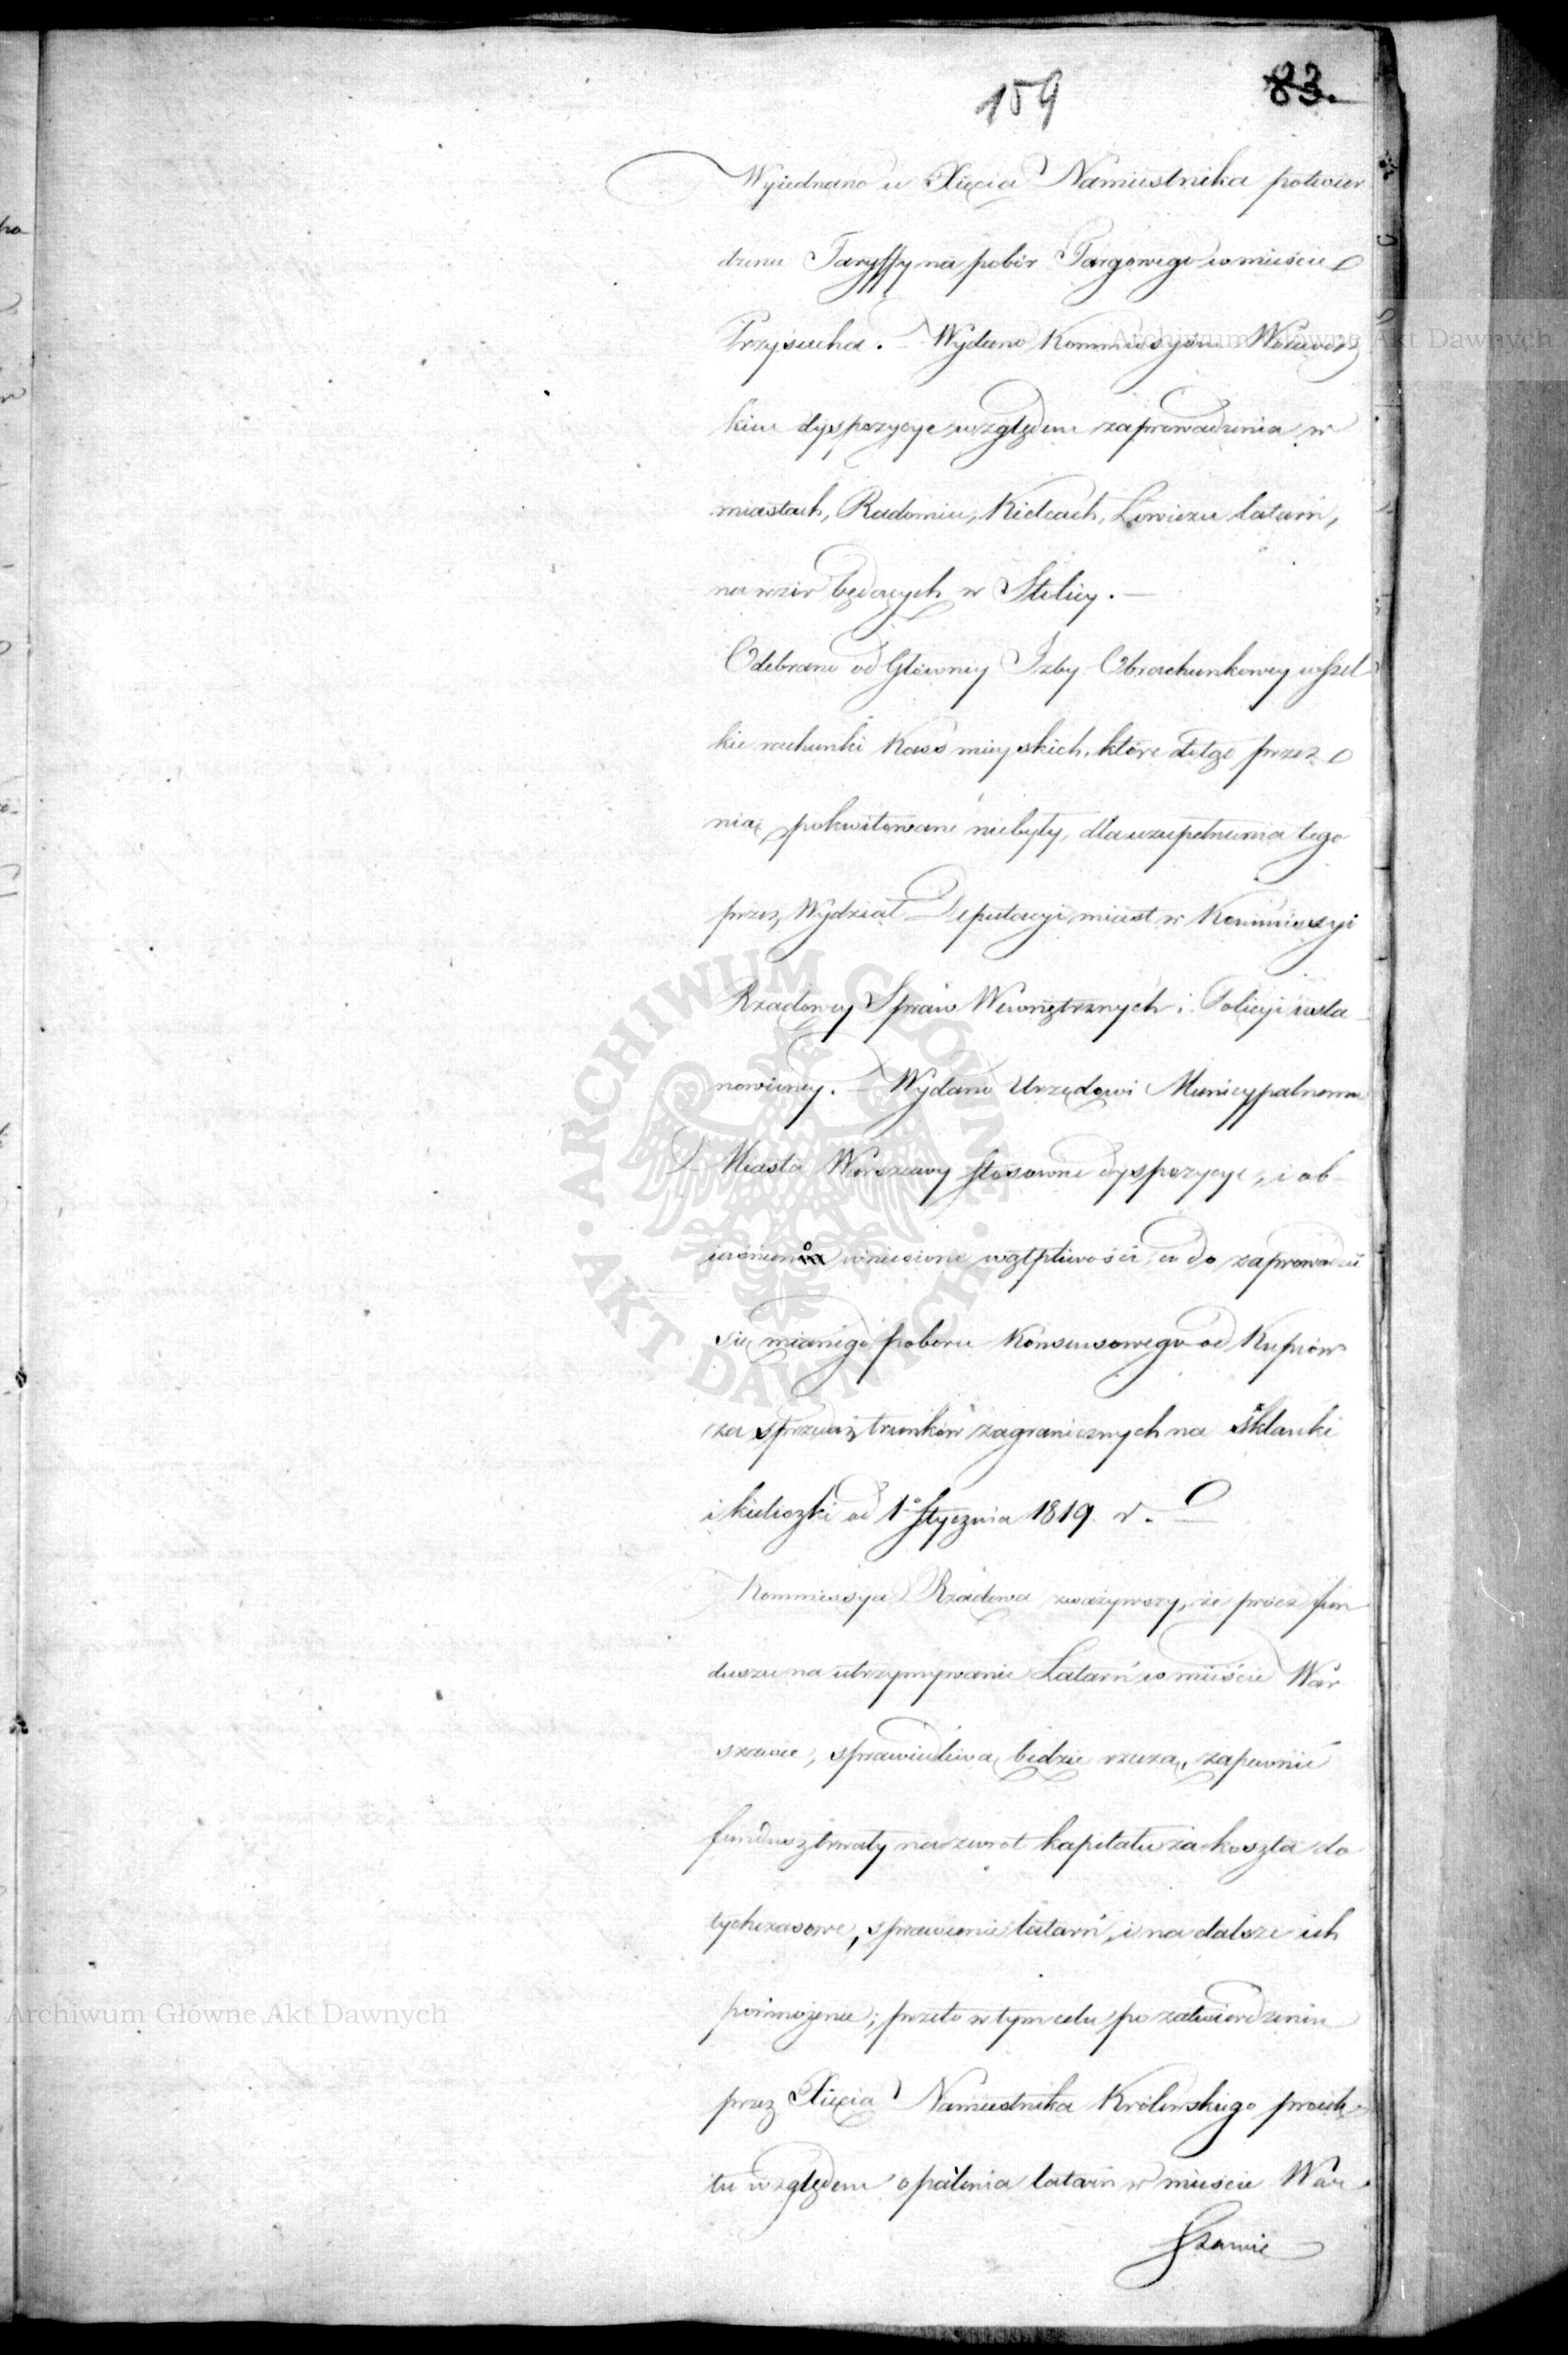 159 83.
Wyiednano u Xięcia Namiestnika potwier
dzenie Taryffy na pobór Targowego w mieście
Przysucha. – Wydano Kommissyom Woiewodz
kim dyspozycye względem zaprowadzenia w
miastach, Radomiu, Kielcach, Łowiczu latarń,
na wzór będących w Stolicy. –
Odebrano od Główney Izby Obrachunkowey wszel
kie rachunki Kass mieyskich, które dotąd przez
nią pokwitowane niebyły, dla uzupełnienia tego
przez Wydział Deputacyi miast w Kommissyi
Rządowey Spraw Wewnętrznych i Policyi usta
nowioney. – Wydano Urzędowi Municypalnemu
Miasta Warszawy stosowne dyspozycye, i ob-
iaśniono wniesione wątpliwości, co do zaprowadzić
się mianego poboru Konsensowego od Kupców
za sprzedaż trunków zagranicznych na szklanki
i kieliszki od 1° Stycznia 1819 r. –
Kommissya Rządowa zważywszy, że prócz fun
duszu na utrzymywanie Latarń w mieście War
szawie, sprawiedliwą będzie rzeczą, zapewnić
fundusz trwały na zwrot kapitału za koszta do
tychczasowe, sprawienie latarń, i na dalsze ich
pomnożenie; przeto w tym celu po zatwierdzeniu
przez Xięcia Namiestnika Królewskiego proiek
tu względem opalenia latarń w mieście War
szawie
Archiwum Główne Akt Dawnych
Archiwum Główne Akt Dawnych
ARCHIWUM GŁÓWNE AKT DAWNYCH